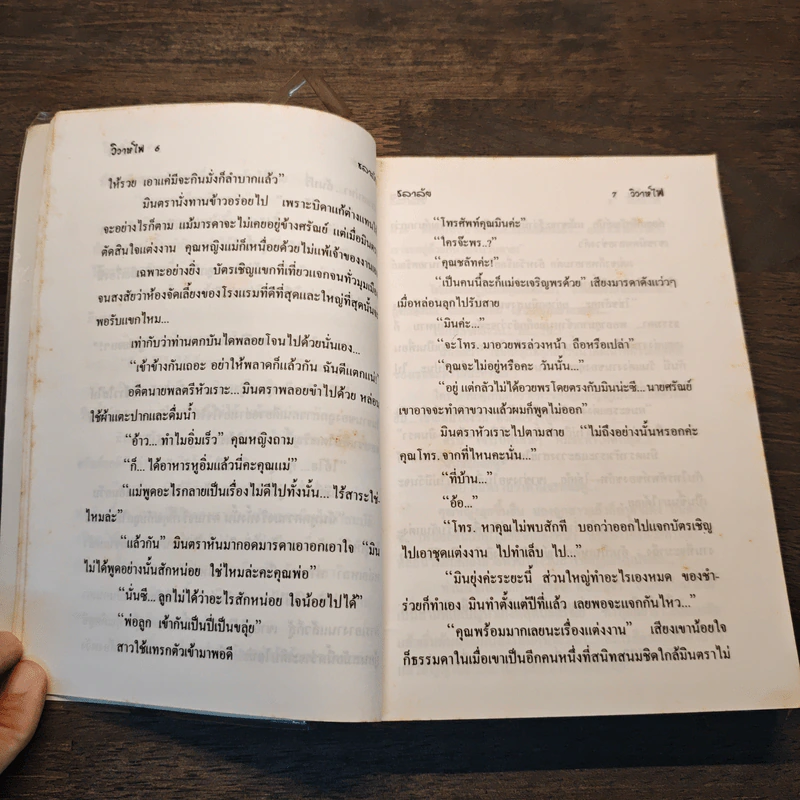 วิวาห์ไฟ ๖
ให้รวย เอาแค่มีจะกินมั่งก็ลำบากแล้ว”
มินตรานั่งทานข้าวอร่อยไป เพราะบิดาแก้ต่างแทน
จะอย่างไรก็ตาม แม้มารดาจะไม่เคยอยู่ข้างศรัณย์ แต่เมื่อ
ตัดสินใจแต่งงาน คุณหญิงแม่ก็เหนื่อยด้วยไม่แพ้เจ้าของงาน
เฉพาะอย่างยิ่ง บัตรเชิญแขกที่เที่ยวแจกจนทั่วมุมเมือง
จนสงสัยว่าห้องจัดเลี้ยงของโรงแรมที่ดีที่สุดและใหญ่ที่สุดนั้น
พอรับแขกไหม...
เท่ากับว่าท่านตกบันไดพลอยโจนไปด้วยนั่นเอง...
“เข้าข้างกันเถอะ อย่าให้พลาดก็แล้วกัน ฉันตีแตกแน่
อดีตนายพลตรีหัวเราะ... มินตราพลอยขำไปด้วย หล่อน
ใช้ผ้าแตะปากและดื่มน้ำ
“อ้าว... ทำไมอิ่มเร็ว” คุณหญิงถาม
“ก็... ได้อาหารหูอิ่มแล้วนี่คะคุณแม่”
“แม่พูดอะไรกลายเป็นเรื่องไม่ดีไปทั้งนั้น... ไร้สาระใช่-
ไหมล่ะ”
“แล้วกัน” มินตราหันมากอดมารดาเอาอกเอาใจ “มิน
ไม่ได้พูดอย่างนั้นสักหน่อย ใช่ไหมล่ะคะคุณพ่อ”
“นั่นซี... ลูกไม่ได้ว่าอะไรสักหน่อย ใจน้อยไปได้”
“พ่อลูก เข้ากันเป็นปี่เป็นขลุ่ย”
สาวใช้แทรกตัวเข้ามาพอดี
ชลาลัย ๗ วิวาห์ไฟ
“โทรศัพท์คุณมินค่ะ”
“ใครจ๊ะพร..?”
“คุณชลัทค่ะ!”
“เป็นคนนี้ละก็แม่จะเจริญพรด้วย” เสียงมารดาดังแว่วๆ
เมื่อหล่อนลุกไปรับสาย
“มินค่ะ...”
“จะโทร. มาอวยพรล่วงหน้า ถือหรือเปล่า”
“คุณจะไม่อยู่หรือคะ วันนั้น...”
“อยู่ แต่กลัวไม่ได้อวยพรโดยตรงกับมินน่ะซี... นายศรัณย์
เขาอาจจะทำตาขวางแล้วผมก็พูดไม่ออก”
มินตราหัวเราะไปตามสาย “ไม่ถึงอย่างนั้นหรอกค่ะ
คุณโทร. จากที่ไหนคะนั่น...”
“ที่บ้าน...”
“อ้อ...”
“โทร. หาคุณไม่พบสักที บอกว่าออกไปแจกบัตรเชิญ
ไปเอาชุดแต่งงาน ไปทำเล็บ ไป...”
“มินยุ่งค่ะระยะนี้ ส่วนใหญ่ทำอะไรเองหมด ของชำ-
ร่วยก็ทำเอง มินทำตั้งแต่ปีที่แล้ว เลยพอจะแจกกันไหว...”
“คุณพร้อมมากเลยนะเรื่องแต่งงาน” เสียงเขาน้อยใจ
ก็ธรรมดาในเมื่อเขาเป็นอีกคนหนึ่งที่สนิทสนมชิดใกล้มินตราไม่